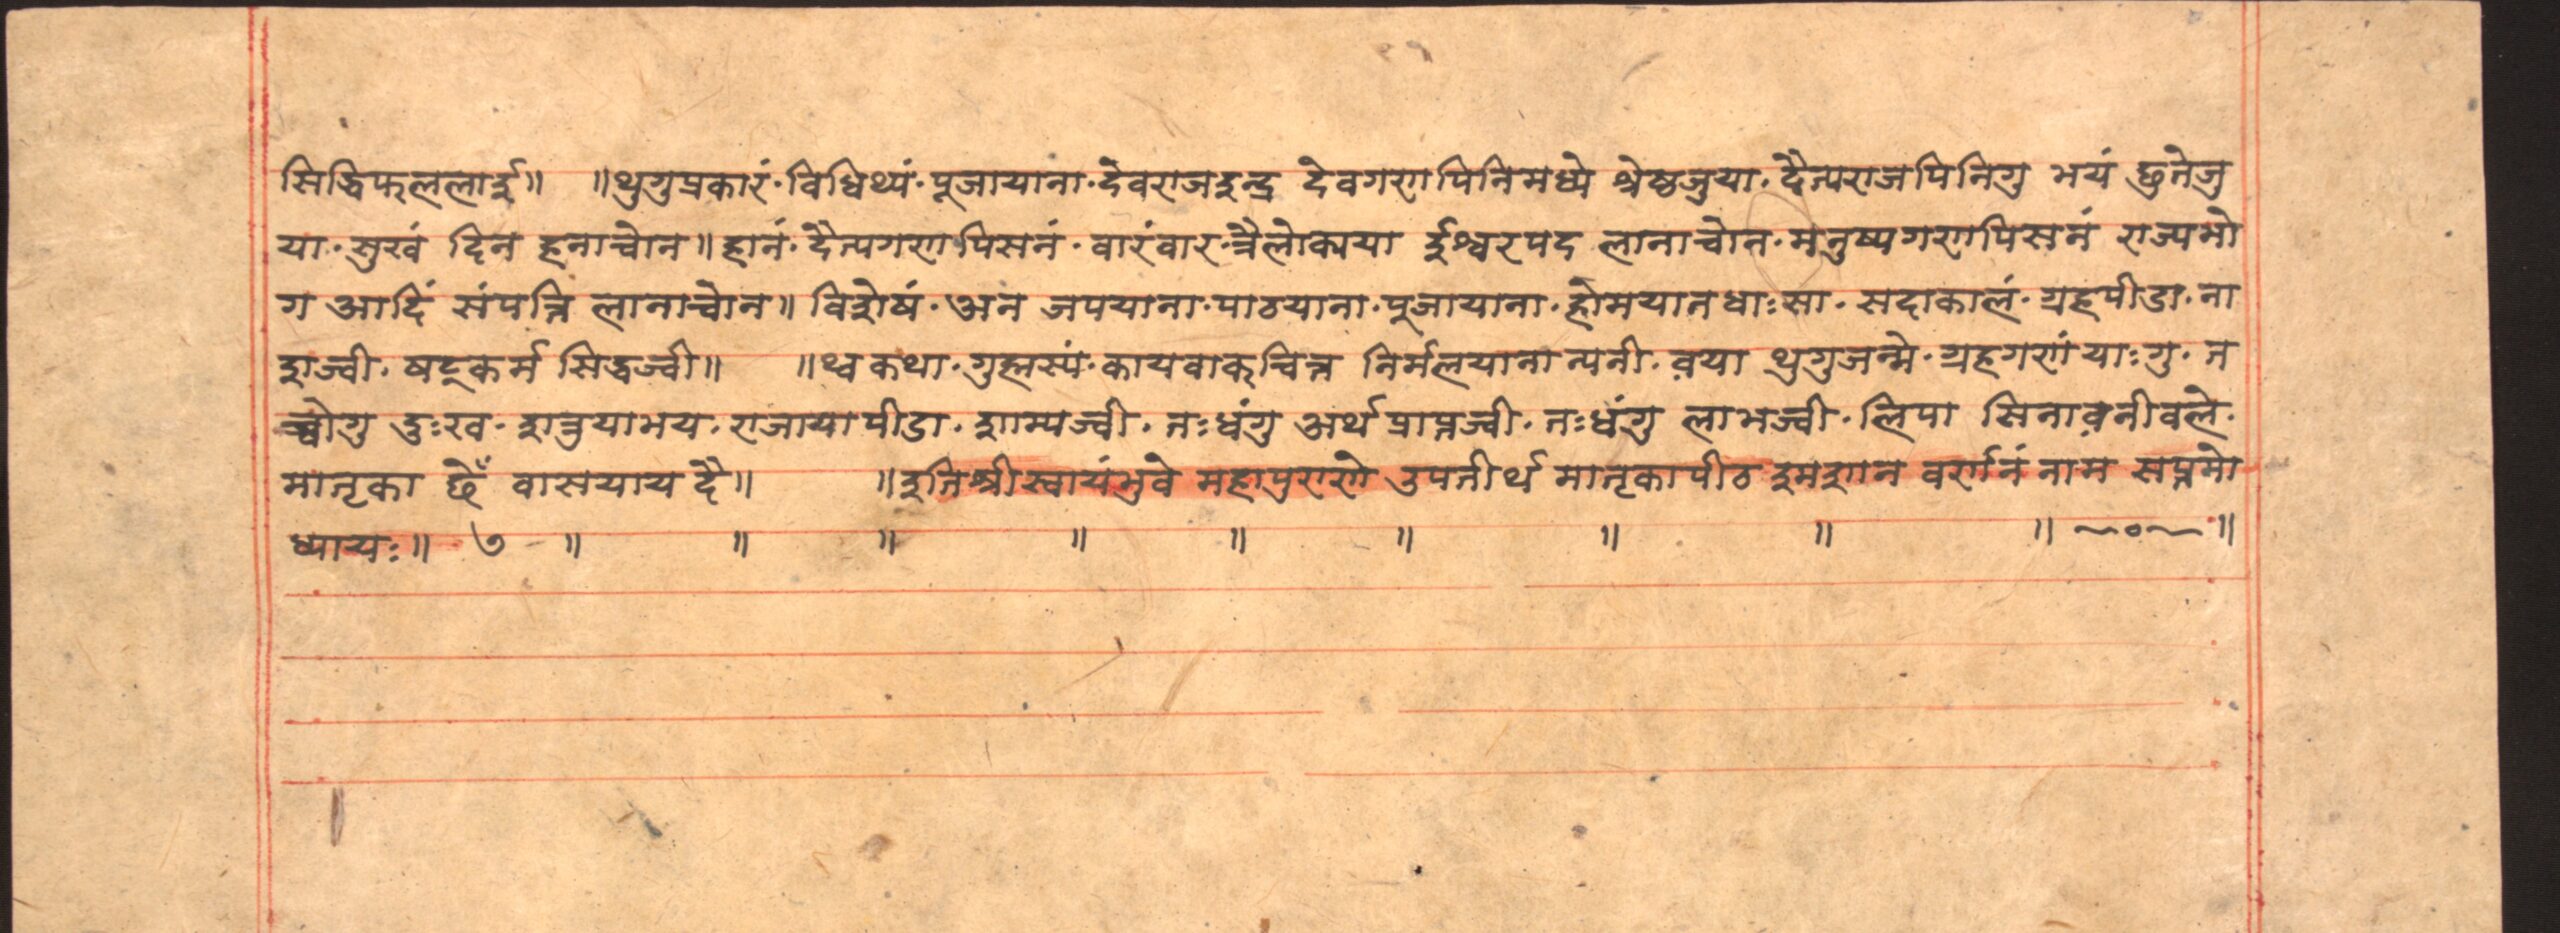 सिद्धिफललाई॥ ॥थुगुप्रकारं·विधिथ्यं·पूजायाना·देवराजइन्द्र देवगणपिनिमध्ये श्रेष्ठजुया·दैत्यराजपिनिगु भयं छुतेजु
या·सुखं दिन हनाच्वोन॥हानं·दैत्यगणपिसनं·वारंवार·त्रैलोक्यया ईश्वरपद लानाच्वोन·मनुष्यगणपिसनं राज्यभो
ग आदिं संपत्ति लानाच्वोन॥विशेषं·अन जपयाना·पाठयाना·पूजायाना·होमयातधाःसा·सदाकालं·ग्रहपीडा·ना
शज्वी·षट्कर्म सिद्धज्वी॥ ॥थ्वकथा·गुह्मस्यं·कायवाक्चित्त निर्मलयानान्यनी·व़या थुगुजन्मे·ग्रहगणंयाःगु·न
च्वोगु दुःख·शत्रुयाभय·राजायापीडा·शाम्यज्वी·तःधंगु अर्थ प्राप्तज्वी·तःधंगु लाभज्वी·लिपा सिनाव़नीवले·
मातृका छेँ वासयाय दै॥ ॥इतिश्रीस्वायंभुवे महापुराणे उपतीर्थ मातृकापीठ श्मशान वर्णनं नाम सप्तमो
ध्यायः॥ ७ ॥ ॥ ॥ ॥ ॥ ॥ ॥ ॥ ॥ ~०~ ॥